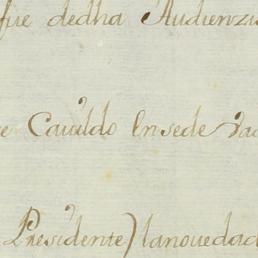 fue dedha Audienzi
Cavildo En sede Va
Presidente) la novedad